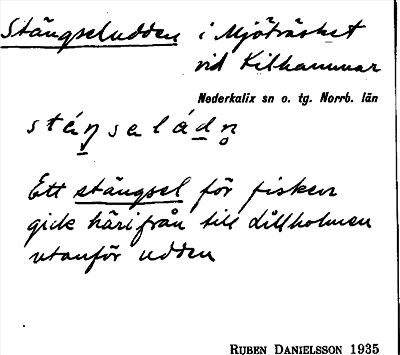 Stängseludden i Mjöträsket
vid Kilhammar
Nederkalix sn o. tg. Norrb. län
stáŋseládn̥
Ett stängsel för fisken
gick härifrån till dillholmen
utanför udden
RUBEN DANIELSSON 1935